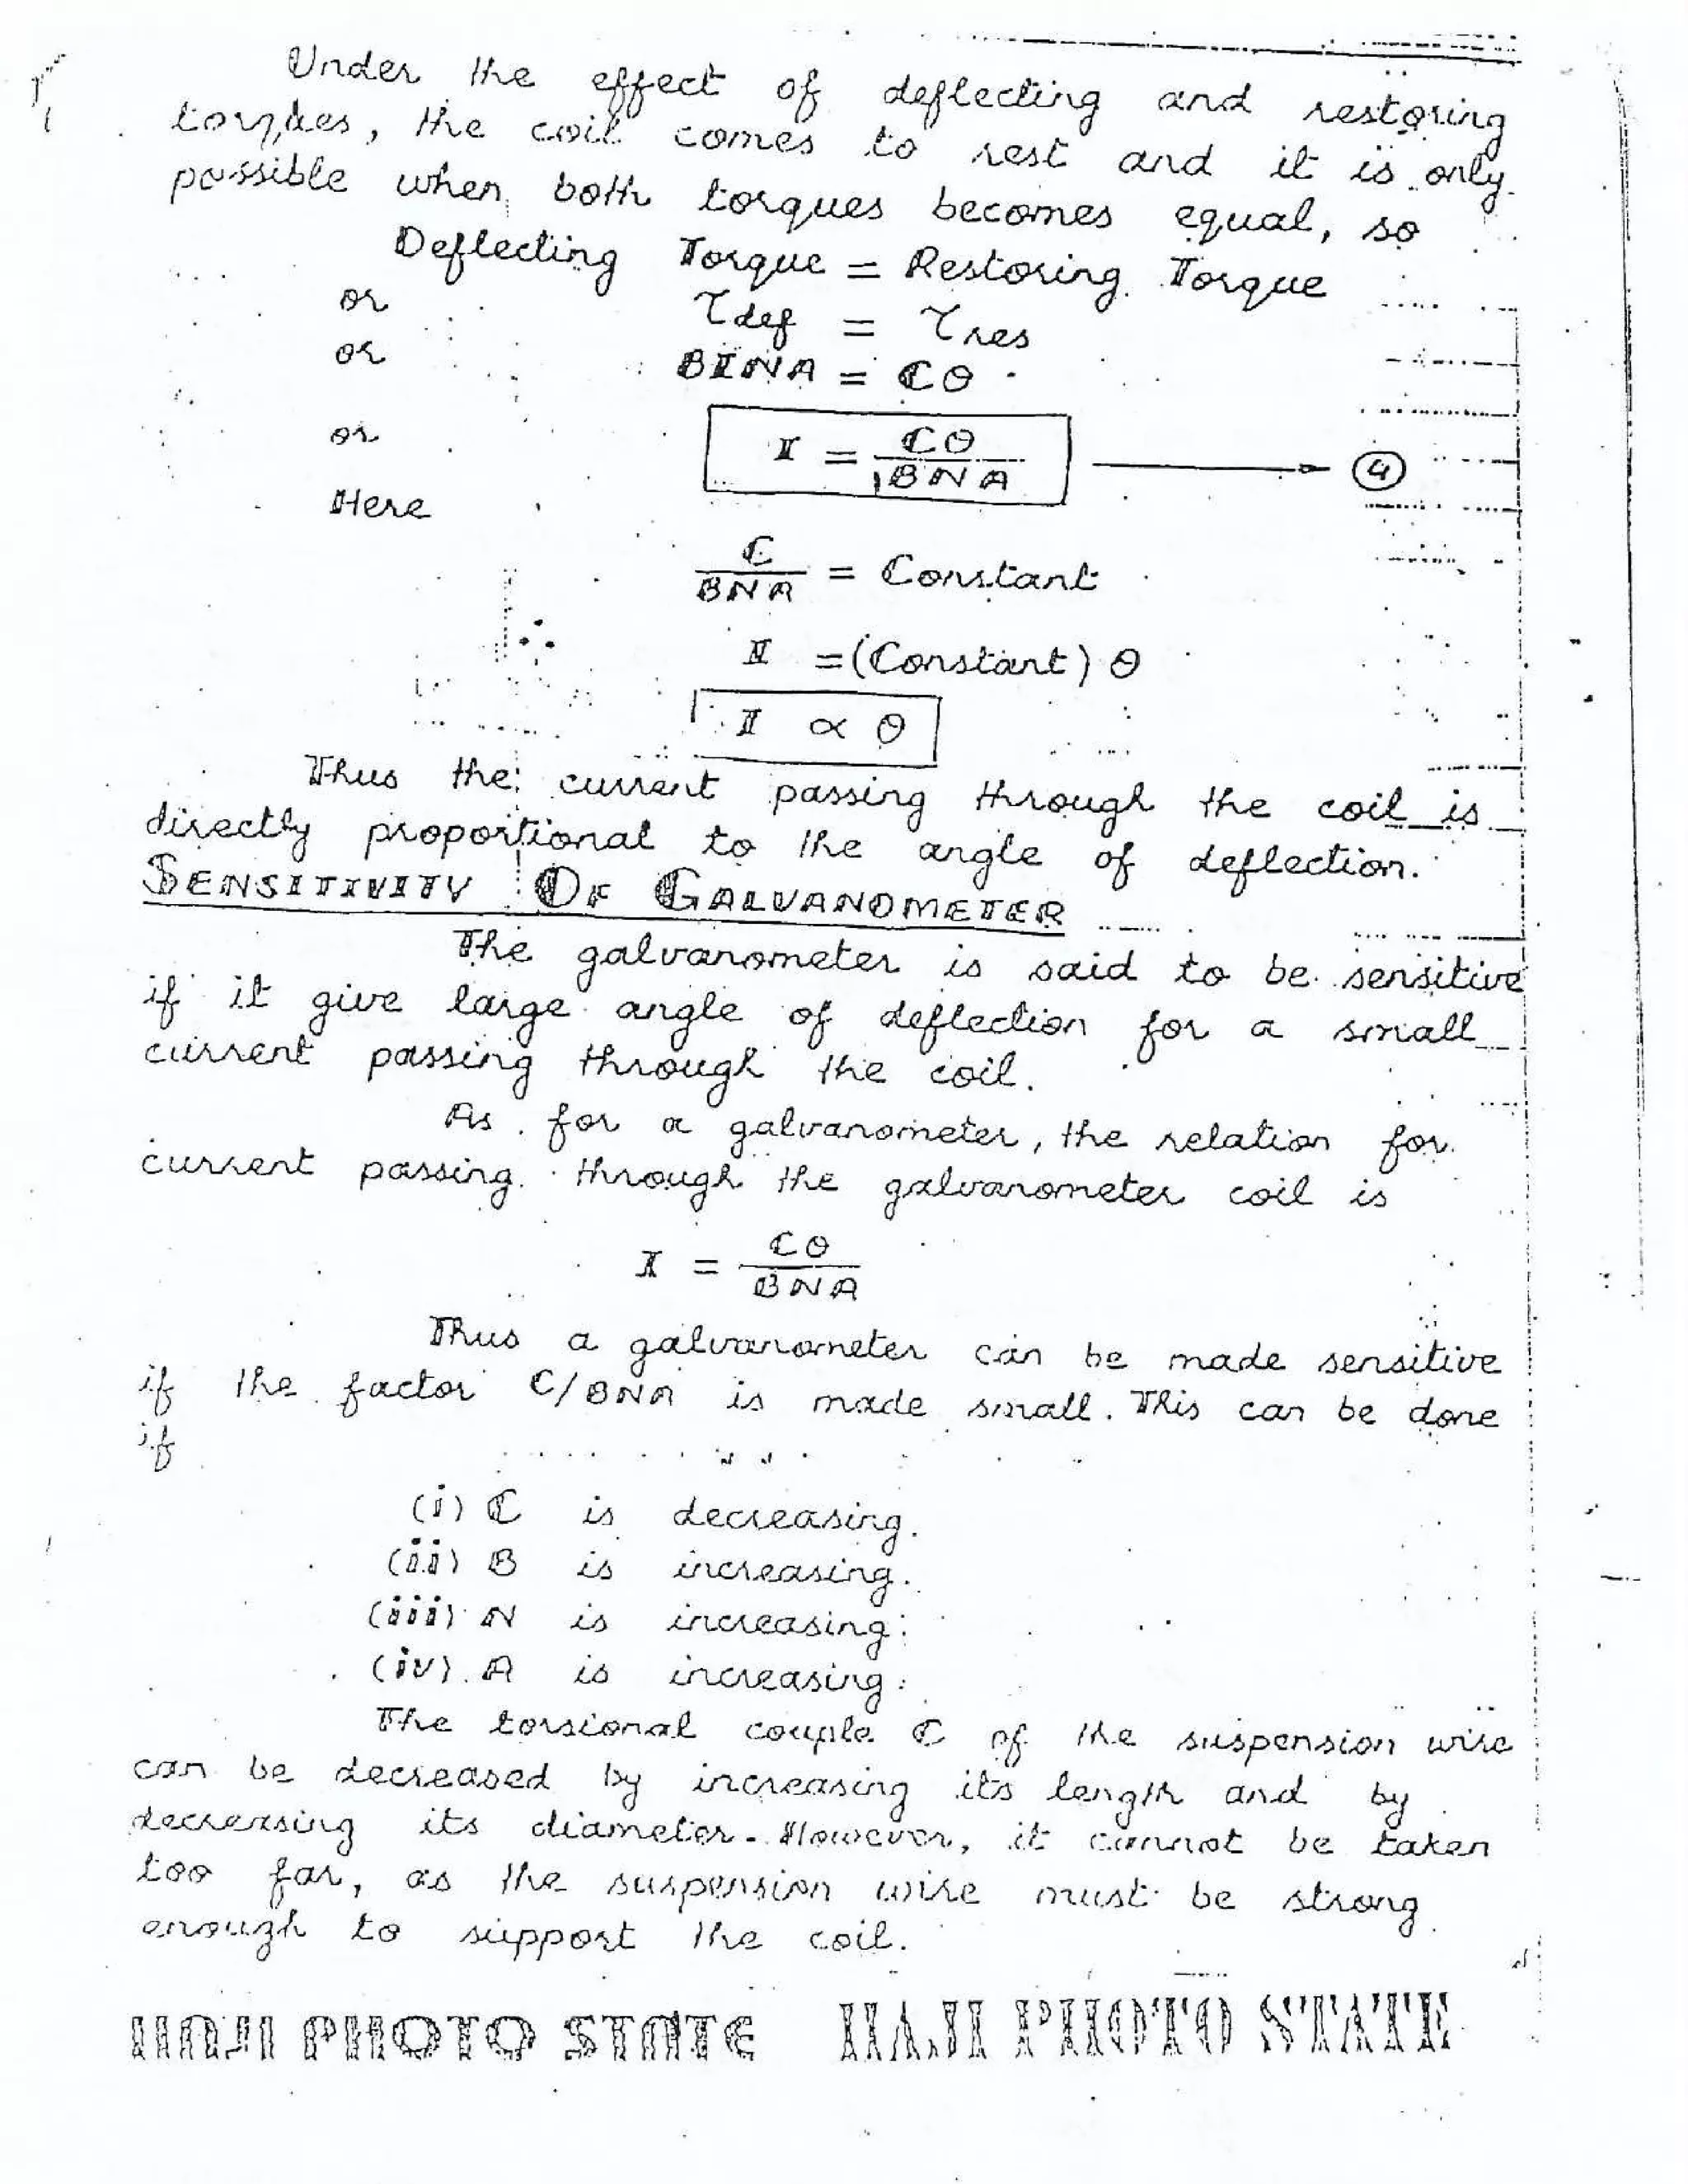 Under the effect of deflecting and restoring
torques, the coil comes to rest and it is only
possible when both torques becomes equal, so
Deflecting Torque = Restoring Torque
or τdef = τres
or BINA = Cθ
or I = Cθ/BNA → ④
Here
C/BNA = Constant
I = (Constant) θ
I ∝ θ
Thus the current passing through the coil is
directly proportional to the angle of deflection.
SENSITIVITY OF GALVANOMETER
The galvanometer is said to be sensitive
if it give large angle of deflection for a small
current passing through the coil.
As for a galvanometer, the relation for
current passing through the galvanometer coil is
I = Cθ/BNA
Thus a galvanometer can be made sensitive
if the factor C/BNA is made small. This can be done
if
(i) C is decreasing.
(ii) B is increasing.
(iii) N is increasing.
(iv) A is increasing.
The torsional couple C of the suspension wire
can be decreased by increasing its length and by
decreasing its diameter. However, it cannot be taken
too far, as the suspension wire must be strong
enough to support the coil.
HAJI PHOTO STATE HAJI PHOTO STATE